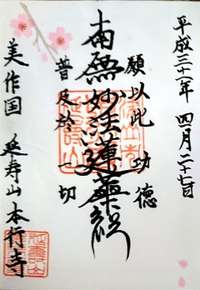 平成三十一年 四月二十七日
願以此功徳
南無妙法蓮華経
普及於一切
美作国 延寿山本行寺